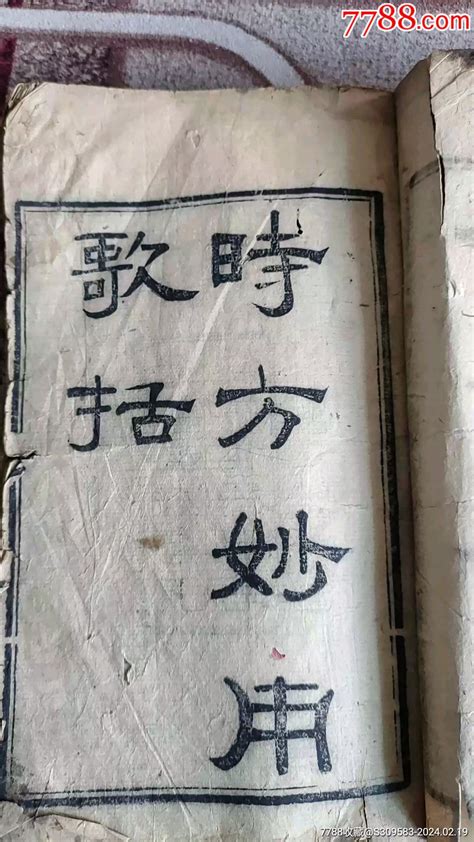 7788.com
時方妙用
歌括
7788收藏@S309583-2024.02.19